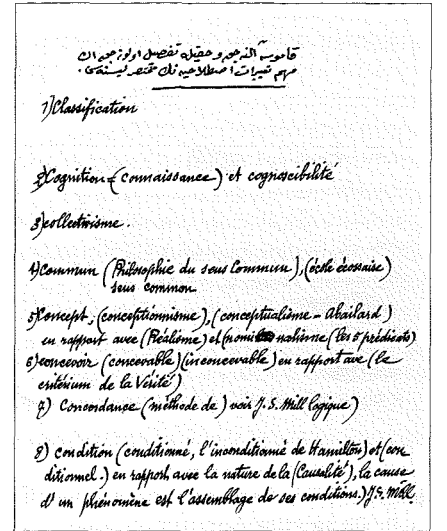 قاموسه آلنه جق و حقيله تفصيل اولونه جق اڭ
مهم تعبيرات اصطلاحيه نڭ مختصر ليسته سى.
1) Classification
2) Cognition = (connaissance) et cognoscibilité
3) collectivisme.
4) Commun (Philosophie du sens Commun), (école écossaise)
sens common
5) Concept, (conceptionnisme), (conceptualisme - Abailard)
en rapport avec (Réalisme) et (nominalisme (les 5 prédicats)
6) concevoir (concevable) (inconcevable) en rapport ave (le
critérium de la Vérité)
7) Concordance (méthode de) voir J. S. Mill logique)
8) condition (conditionné, l'inconditionné de Hamilton) et (con
ditionnel.) en rapport avec la nature de la (Causalité), la cause
d'un phénomène est l'assemblage de ses conditions.) J. S. Mill.